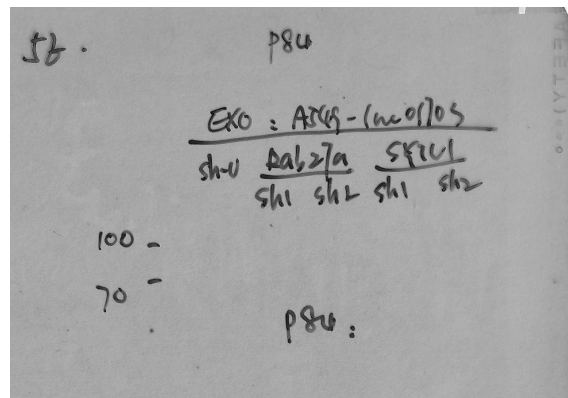 5b.
P84
EXO : A549-
sh-U Rab27a
sh1 sh2 sh1 sh2
100 -
70 -
P84: